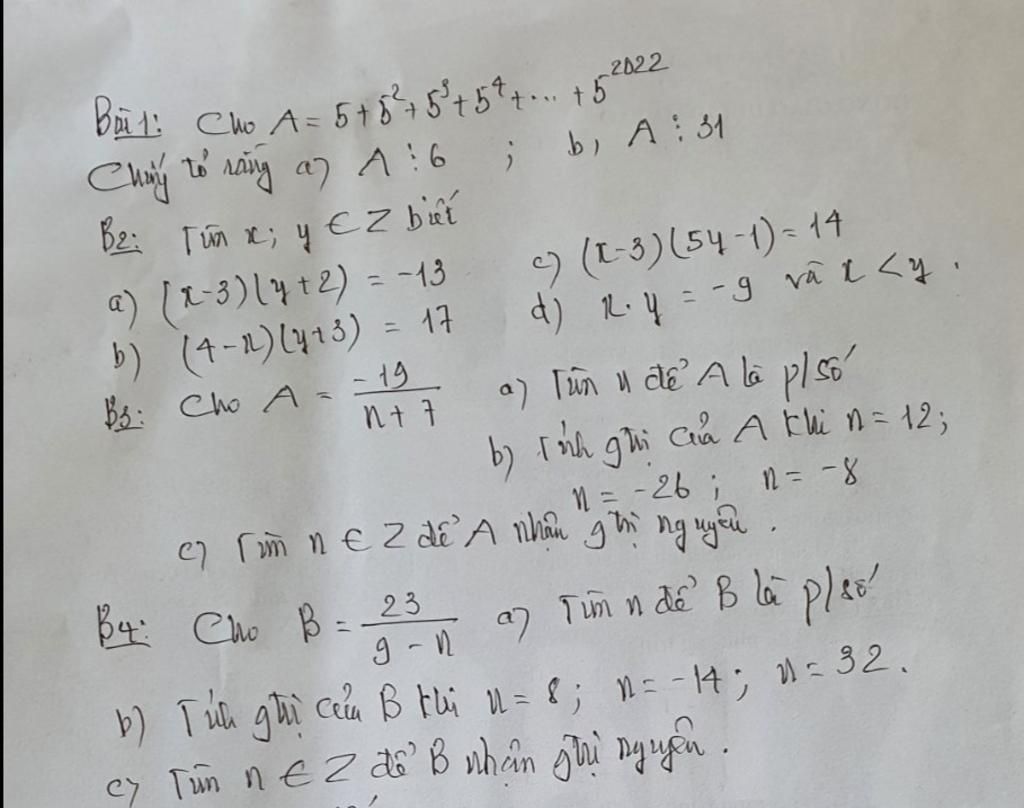 Bài 1: Cho A = 5 + 5² + 5³ + 5⁴ + ... + 5²⁰²²
Chứng tỏ rằng a) A ⋮ 6 ; b, A ⋮ 31
B2: Tìm x; y ∈ Z biết
a) (x-3)(y+2) = -13
b) (4-x)(y+3) = 17
c) (x-3)(5y-1) = 14
d) x.y = -9 và x < y.
B3: Cho A = -19/(n+7) a) Tìm n để A là p/số
b) Tính gtrị của A khi n = 12;
n = -26; n = -8
c) Tìm n ∈ Z để A nhận gtrị nguyên.
B4: Cho B = 23/(9-n) a) Tìm n để B là p/số
b) Tính gtrị của B khi n = 8; n = -14; n = 32.
c) Tìm n ∈ Z để B nhận gtrị nguyên.